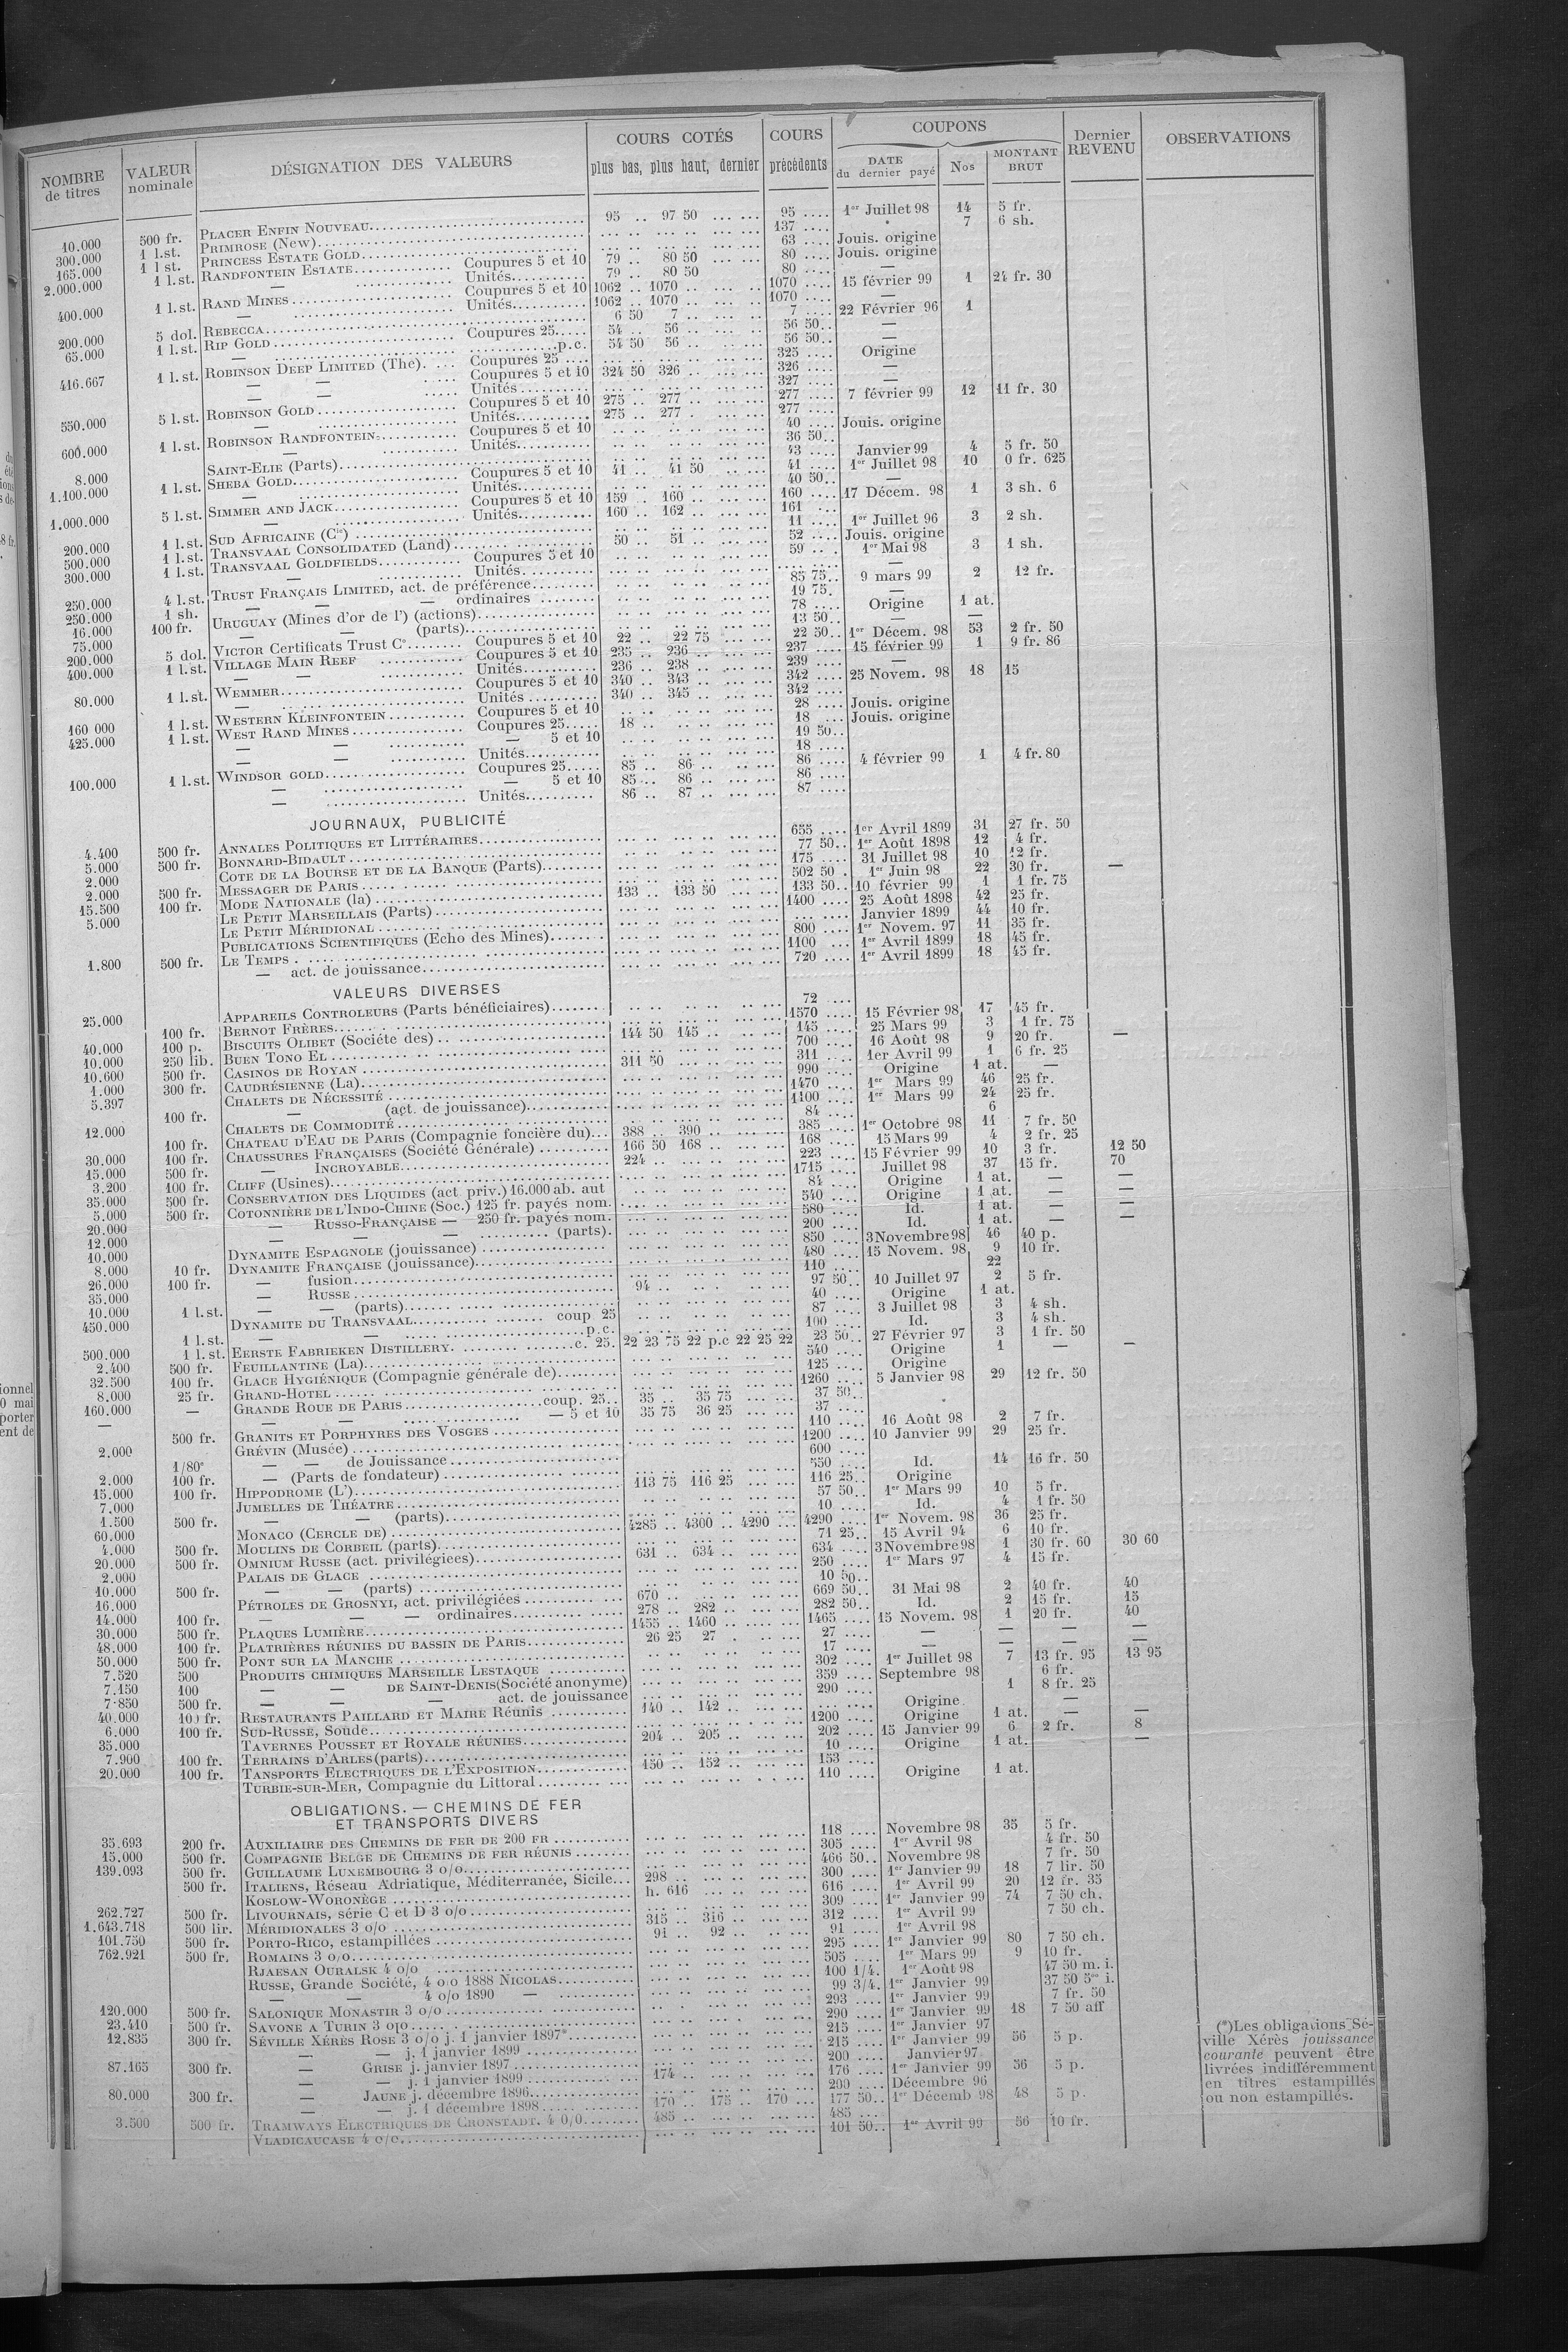 NOMBRE de titres | VALEUR nominale | DÉSIGNATION DES VALEURS | COURS COTÉS plus bas, plus haut, dernier | COURS précédents | COUPONS DATE du dernier payé | Nos | MONTANT BRUT | Dernier REVENU | OBSERVATIONS
10.000 500 fr. PLACER ENFIN NOUVEAU 95 .. 97 50 95 .... 1er Juillet 98 14 5 fr.
300.000 1 l.st. PRIMROSE (New) 137 .... 7 6 sh.
165.000 1 l st. PRINCESS ESTATE GOLD 63 .... Jouis. origine
2.000.000 1 l.st. RANDFONTEIN ESTATE Coupures 5 et 10 79 .. 80 50 80 .... Jouis. origine
— Unités 79 .. 80 50 80 .... —
400.000 1 l.st. RAND MINES Coupures 5 et 10 1062 .. 1070 .. 1070 .... 15 février 99 1 24 fr. 30
— Unités 1062 .. 1070 .. 1070 .... —
200.000 5 dol. REBECCA 6 50 7 .. 7 .... 22 Février 96 1
65.000 1 l.st. RIP GOLD Coupures 25 54 .. 56 .. 56 50.. —
— p.c. 54 50 56 .. 56 50.. —
416.667 1 l.st. ROBINSON DEEP LIMITED (The) Coupures 25 325 .... Origine
— — Coupures 5 et 10 324 50 326 .. 326 .... —
— — Unités 327 .... —
550.000 5 l.st. ROBINSON GOLD Coupures 5 et 10 275 .. 277 .. 277 .... 7 février 99 12 11 fr. 30
— Unités 275 .. 277 . 277 ....
600.000 1 l.st. ROBINSON RANDFONTEIN Coupures 5 et 10 40 .... Jouis. origine
— Unités 36 50..
8.000 SAINT-ELIE (Parts) 43 .... Janvier 99 4 5 fr. 50
1.100.000 1 l.st. SHEBA GOLD Coupures 5 et 10 41 .. 41 50 41 .... 1er Juillet 98 10 0 fr. 625
— Unités 40 50.. —
1.000.000 5 l.st. SIMMER AND JACK Coupures 5 et 10 159 .. 160 .. 160 .... 17 Décem. 98 1 3 sh. 6
— Unités 160 .. 162 .. 161 ....
200.000 1 l.st. SUD AFRICAINE (Cie) 11 .... 1er Juillet 96 3 2 sh.
500.000 1 l.st. TRANSVAAL CONSOLIDATED (Land) 50 .. 51 .. 52 .... Jouis. origine
300.000 1 l.st. TRANSVAAL GOLDFIELDS Coupures 5 et 10 59 .. . 1er Mai 98 3 1 sh.
— Unités —
250.000 4 l.st. TRUST FRANÇAIS LIMITED, act. de préférence 85 75.. 9 mars 99 2 12 fr.
250.000 1 sh. — — — ordinaires 19 75. —
16.000 100 fr. URUGUAY (Mines d'or de l') (actions) 78 .... Origine 1 at.
75.000 — — (parts) 13 50.. — —
200.000 5 dol. VICTOR Certificats Trust Co Coupures 5 et 10 22 .. 22 75 22 50.. 1er Décem. 98 53 2 fr. 50
400.000 1 l.st. VILLAGE MAIN REEF Coupures 5 et 10 235 .. 236 .. 237 .... 15 février 99 1 9 fr. 86
— — Unités 236 .. 238 .. 239 .... —
80.000 1 l.st. WEMMER Coupures 5 et 10 340 .. 343 .. 342 .... 25 Novem. 98 18 15
— Unités 340 .. 345 .. 342 ....
160 000 1 l.st. WESTERN KLEINFONTEIN Coupures 5 et 10 28 .... Jouis. origine
425.000 1 l.st. WEST RAND MINES Coupures 25 18 .. 18 ... Jouis. origine
— — — 5 et 10 19 50..
— — Unités 18 ....
100.000 1 l.st. WINDSOR GOLD Coupures 25 85 .. 86 .. 86 .... 4 février 99 1 4 fr. 80
— — 5 et 10 85 .. 86 .. 86 ....
— Unités 86 .. 87 .. 87 ....
JOURNAUX, PUBLICITÉ
4.400 500 fr. ANNALES POLITIQUES ET LITTÉRAIRES 655 .... 1er Avril 1899 31 27 fr. 50
5.000 500 fr. BONNARD-BIDAULT 77 50.. 1er Août 1898 12 4 fr.
2.000 COTE DE LA BOURSE ET DE LA BANQUE (Parts) 175 .... 31 Juillet 98 10 12 fr.
2.000 500 fr. MESSAGER DE PARIS 502 50 . 1er Juin 98 22 30 fr. —
15.500 100 fr. MODE NATIONALE (la) 133 .. 133 50 133 50.. 10 février 99 1 1 fr. 75
5.000 LE PETIT MARSEILLAIS (Parts) 1400 .... 25 Août 1898 42 25 fr.
LE PETIT MÉRIDIONAL Janvier 1899 44 10 fr.
PUBLICATIONS SCIENTIFIQUES (Echo des Mines) 800 .... 1er Novem. 97 11 35 fr.
1.800 500 fr. LE TEMPS 1100 ... 1er Avril 1899 18 45 fr.
— act. de jouissance 720 .... 1er Avril 1899 18 45 fr.
VALEURS DIVERSES
25.000 APPAREILS CONTROLEURS (Parts bénéficiaires) 72 ....
100 fr. BERNOT FRÈRES 1570 .... 15 Février 98 17 45 fr.
40.000 100 p. BISCUITS OLIBET (Sociéte des) 144 50 145 .. 145 .... 25 Mars 99 3 1 fr. 75
10.000 250 lib. BUEN TONO EL 700 .... 16 Août 98 9 20 fr. —
10.600 500 fr. CASINOS DE ROYAN 311 50 311 .... 1er Avril 99 1 6 fr. 25
1.000 300 fr. CAUDRÉSIENNE (La) 990 .... Origine 1 at. —
5.397 CHALETS DE NÉCESSITÉ 1470 .... 1er Mars 99 46 25 fr.
100 fr. — (act. de jouissance) 1100 .... 1er Mars 99 24 25 fr.
12.000 CHALETS DE COMMODITÉ 84 .... 6
100 fr. CHATEAU D'EAU DE PARIS (Compagnie foncière du) 388 .. 390 .. 385 .... 1er Octobre 98 11 7 fr. 50
30.000 100 fr. CHAUSSURES FRANÇAISES (Société Générale) 166 50 168 .. 168 .... 15 Mars 99 4 2 fr. 25
15.000 500 fr. — INCROYABLE 224 .. 223 .... 15 Février 99 10 3 fr. 12 50
3.200 100 fr. CLIFF (Usines) 1715 .... Juillet 98 37 15 fr. 70
35.000 500 fr. CONSERVATION DES LIQUIDES (act priv.) 16.000 ab. aut 84 .... Origine 1 at. — —
5.000 500 fr. COTONNIÈRE DE L'INDO-CHINE (Soc.) 125 fr. payés nom. 540 .... Origine 1 at. — —
20.000 — RUSSO-FRANÇAISE — 250 fr. payés nom. 580 .... Id. 1 at. — —
12.000 — — — (parts). 200 .... Id. 1 at. — —
10.000 DYNAMITE ESPAGNOLE (jouissance) 850 .... 3 Novembre 98 46 40 p.
8.000 10 fr. DYNAMITE FRANÇAISE (jouissance) 480 .... 15 Novem. 98 9 10 fr.
26.000 100 fr. — fusion 110 .... 22
35.000 — RUSSE 94 .. 97 50.. 10 Juillet 97 2 5 fr.
10.000 — — (parts) 40 .... Origine 1 at.
450.000 1 l.st. DYNAMITE DU TRANSVAAL coup 25 87 .... 3 Juillet 98 3 4 sh.
1 l.st. — — p.c. 100 .... Id. 3 4 sh.
500.000 1 l.st. EERSTE FABRIEKEN DISTILLERY c. 25. 22 23 75 22 p.c 22 25 22 23 50.. 27 Février 97 3 1 fr. 50
2.400 500 fr. FEUILLANTINE (La) 540 .... Origine 1 — —
32.500 100 fr. GLACE HYGIÉNIQUE (Compagnie générale de) 125 .... Origine
8.000 25 fr. GRAND-HOTEL 1260 .... 5 Janvier 98 29 12 fr. 50
160.000 — GRANDE ROUE DE PARIS coup. 25 35 .. 35 75 37 50..
— — — — 5 et 10 35 75 36 25 37 ....
500 fr. GRANITS ET PORPHYRES DES VOSGES 110 .... 16 Août 98 2 7 fr.
2.000 GRÉVIN (Musée) 1200 .... 10 Janvier 99 29 25 fr.
1/80e — — de Jouissance 600 ....
2.000 100 fr. — (Parts de fondateur) 550 .... Id. 14 16 fr. 50
15.000 100 fr. HIPPODROME (L') 113 75 116 25 116 25.. Origine
7.000 JUMELLES DE THÉATRE 57 50.. 1er Mars 99 10 5 fr.
1.500 500 fr. — — (parts) 10 .... Id. 4 1 fr. 50
60.000 MONACO (CERCLE DE) 4285 .. 4300 .. 4290 4290 .... 1er Novem. 98 36 25 fr.
4.000 500 fr. MOULINS DE CORBEIL (parts) 71 25.. 15 Avril 94 6 10 fr.
20.000 500 fr. OMNIUM RUSSE (act. privilégiees) 631 .. 634 .. 634 .... 3 Novembre 98 1 30 fr. 60 30 60
2.000 PALAIS DE GLACE 250 .... 1er Mars 97 4 15 fr.
10.000 500 fr. — — (parts) 10 50..
16.000 PÉTROLES DE GROSNYI, act. privilégiées 670 .. 669 50.. 31 Mai 98 2 40 fr. 40
14.000 100 fr. — — — ordinaires 278 .. 282 .. 282 50.. Id. 2 15 fr. 15
30.000 500 fr. PLAQUES LUMIÈRE 1455 .. 1460 .. 1465 .... 15 Novem. 98 1 20 fr. 40
48.000 100 fr. PLATRIÈRES RÉUNIES DU BASSIN DE PARIS 26 25 27 . 27 .... — — — —
50.000 500 fr. PONT SUR LA MANCHE 17 .... — — — —
7.520 500 PRODUITS CHIMIQUES MARSEILLE LESTAQUE 302 .... 1er Juillet 98 7 13 fr. 95 13 95
7.150 100 — — DE SAINT-DENIS (Société anonyme) 359 .... Septembre 98 6 fr.
7.850 500 fr. — — — act. de jouissance 290 .... 1 8 fr. 25
40.000 100 fr. RESTAURANTS PAILLARD ET MAIRE Réunis 140 .. 142 .. Origine —
6.000 100 fr. SUD-RUSSE, Soude 1200 .... Origine 1 at. — —
35.000 TAVERNES POUSSET ET ROYALE RÉUNIES 204 .. 205 .. 202 .... 15 Janvier 99 6 2 fr. 8
7.900 100 fr. TERRAINS D'ARLES (parts) 10 .... Origine 1 at. —
20.000 100 fr. TANSPORTS ELECTRIQUES DE L'EXPOSITION 150 .. 152 .. 153 ....
TURBIE-SUR-MER, Compagnie du Littoral 110 .... Origine 1 at.
OBLIGATIONS. — CHEMINS DE FER
ET TRANSPORTS DIVERS
35.693 200 fr. AUXILIAIRE DES CHEMINS DE FER DE 200 FR 118 .... Novembre 98 35 5 fr.
15.000 500 fr. COMPAGNIE BELGE DE CHEMINS DE FER RÉUNIS 305 .... 1er Avril 98 4 fr. 50
139.093 500 fr. GUILLAUME LUXEMBOURG 3 o/o 466 50.. Novembre 98 7 fr. 50
500 fr. ITALIENS, Réseau Adriatique, Méditerranée, Sicile 298 .. 300 .... 1er Janvier 99 18 7 lir. 50
KOSLOW-WORONÈGE h. 616 616 .... 1er Avril 99 20 12 fr. 35
262.727 500 fr. LIVOURNAIS, série C et D 3 o/o 309 .... 1er Janvier 99 74 7 50 ch.
1.643.718 500 lir. MÉRIDIONALES 3 o/o 315 .. 316 .. 312 .... 1er Avril 99 7 50 ch.
101.750 500 fr. PORTO-RICO, estampillées 91 .. 92 .. 91 .... 1er Avril 98
762.921 500 fr. ROMAINS 3 o/o 295 .... 1er Janvier 99 80 7 50 ch.
RJAESAN OURALSK 4 o/o 505 .... 1er Mars 99 9 10 fr.
RUSSE, Grande Société, 4 o/o 1888 NICOLAS 100 1/4. 1er Août 98 47 50 m. i.
— — 4 o/o 1890 — 99 3/4. 1er Janvier 99 37 50 i.
120.000 500 fr. SALONIQUE MONASTIR 3 o/o 293 .... 1er Janvier 99 7 fr. 50
23.410 500 fr. SAVONE A TURIN 3 o/o 290 .... 1er Janvier 99 18 7 50 aff
12.835 300 fr. SÉVILLE XÉRÈS ROSE 3 o/o j. 1 janvier 1897* 215 .... 1er Janvier 97
— — j. 1 janvier 1899 215 .... 1er Janvier 99 56 5 p.
87.165 300 fr. — GRISE j. janvier 1897 200 .... Janvier 97
— — j. 1 janvier 1899 174 .. 176 .... 1er Janvier 99 56 5 p.
80.000 300 fr. — JAUNE j. décembre 1896 200 .... Décembre 96
— — j. 1 décembre 1898 170 .. 175 .. 170 177 50.. 1er Décemb 98 48 5 p.
3.500 500 fr. TRAMWAYS ELECTRIQUES DE CRONSTADT. 4 0/0 485 .. 485 ...
VLADICAUCASE 4 o/o 101 50.. 1er Avril 99 56 10 fr.
(*) Les obligations Sé-
ville Xérès jouissance
courante peuvent être
livrées indifféremment
en titres estampillés
ou non estampillés.
ionnel
0 mai
porter
ent de